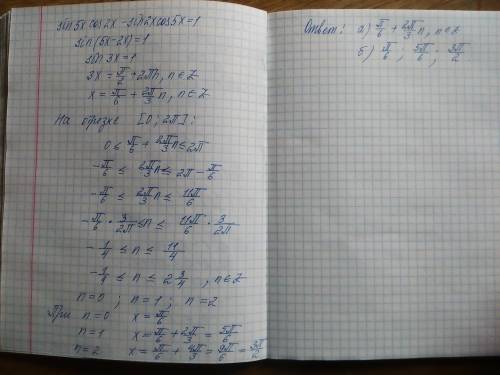 sin 5x cos 2x - sin 2x cos 5x = 1
sin (5x - 2x) = 1
sin 3x = 1
3x = π/2 + 2πn, n ∈ Z
x = π/6 + 2π/3 n, n ∈ Z
На отрезке [0; 2π]:
0 ≤ π/6 + 2π/3 n ≤ 2π
-π/6 ≤ 2π/3 n ≤ 2π - π/6
-π/6 ≤ 2π/3 n ≤ 11π/6
-π/6 · 3/2π ≤ n ≤ 11π/6 · 3/2π
-1/4 ≤ n ≤ 11/4
-1/4 ≤ n ≤ 2 3/4, n ∈ Z
n=0 ; n=1 ; n=2
При n=0 x = π/6
n=1 x = π/6 + 2π/3 = 5π/6
n=2 x = π/6 + 4π/3 = 9π/6 = 3π/2
Ответ: а) π/6 + 2π/3 n, n ∈ Z
б) π/6 ; 5π/6 ; 3π/2